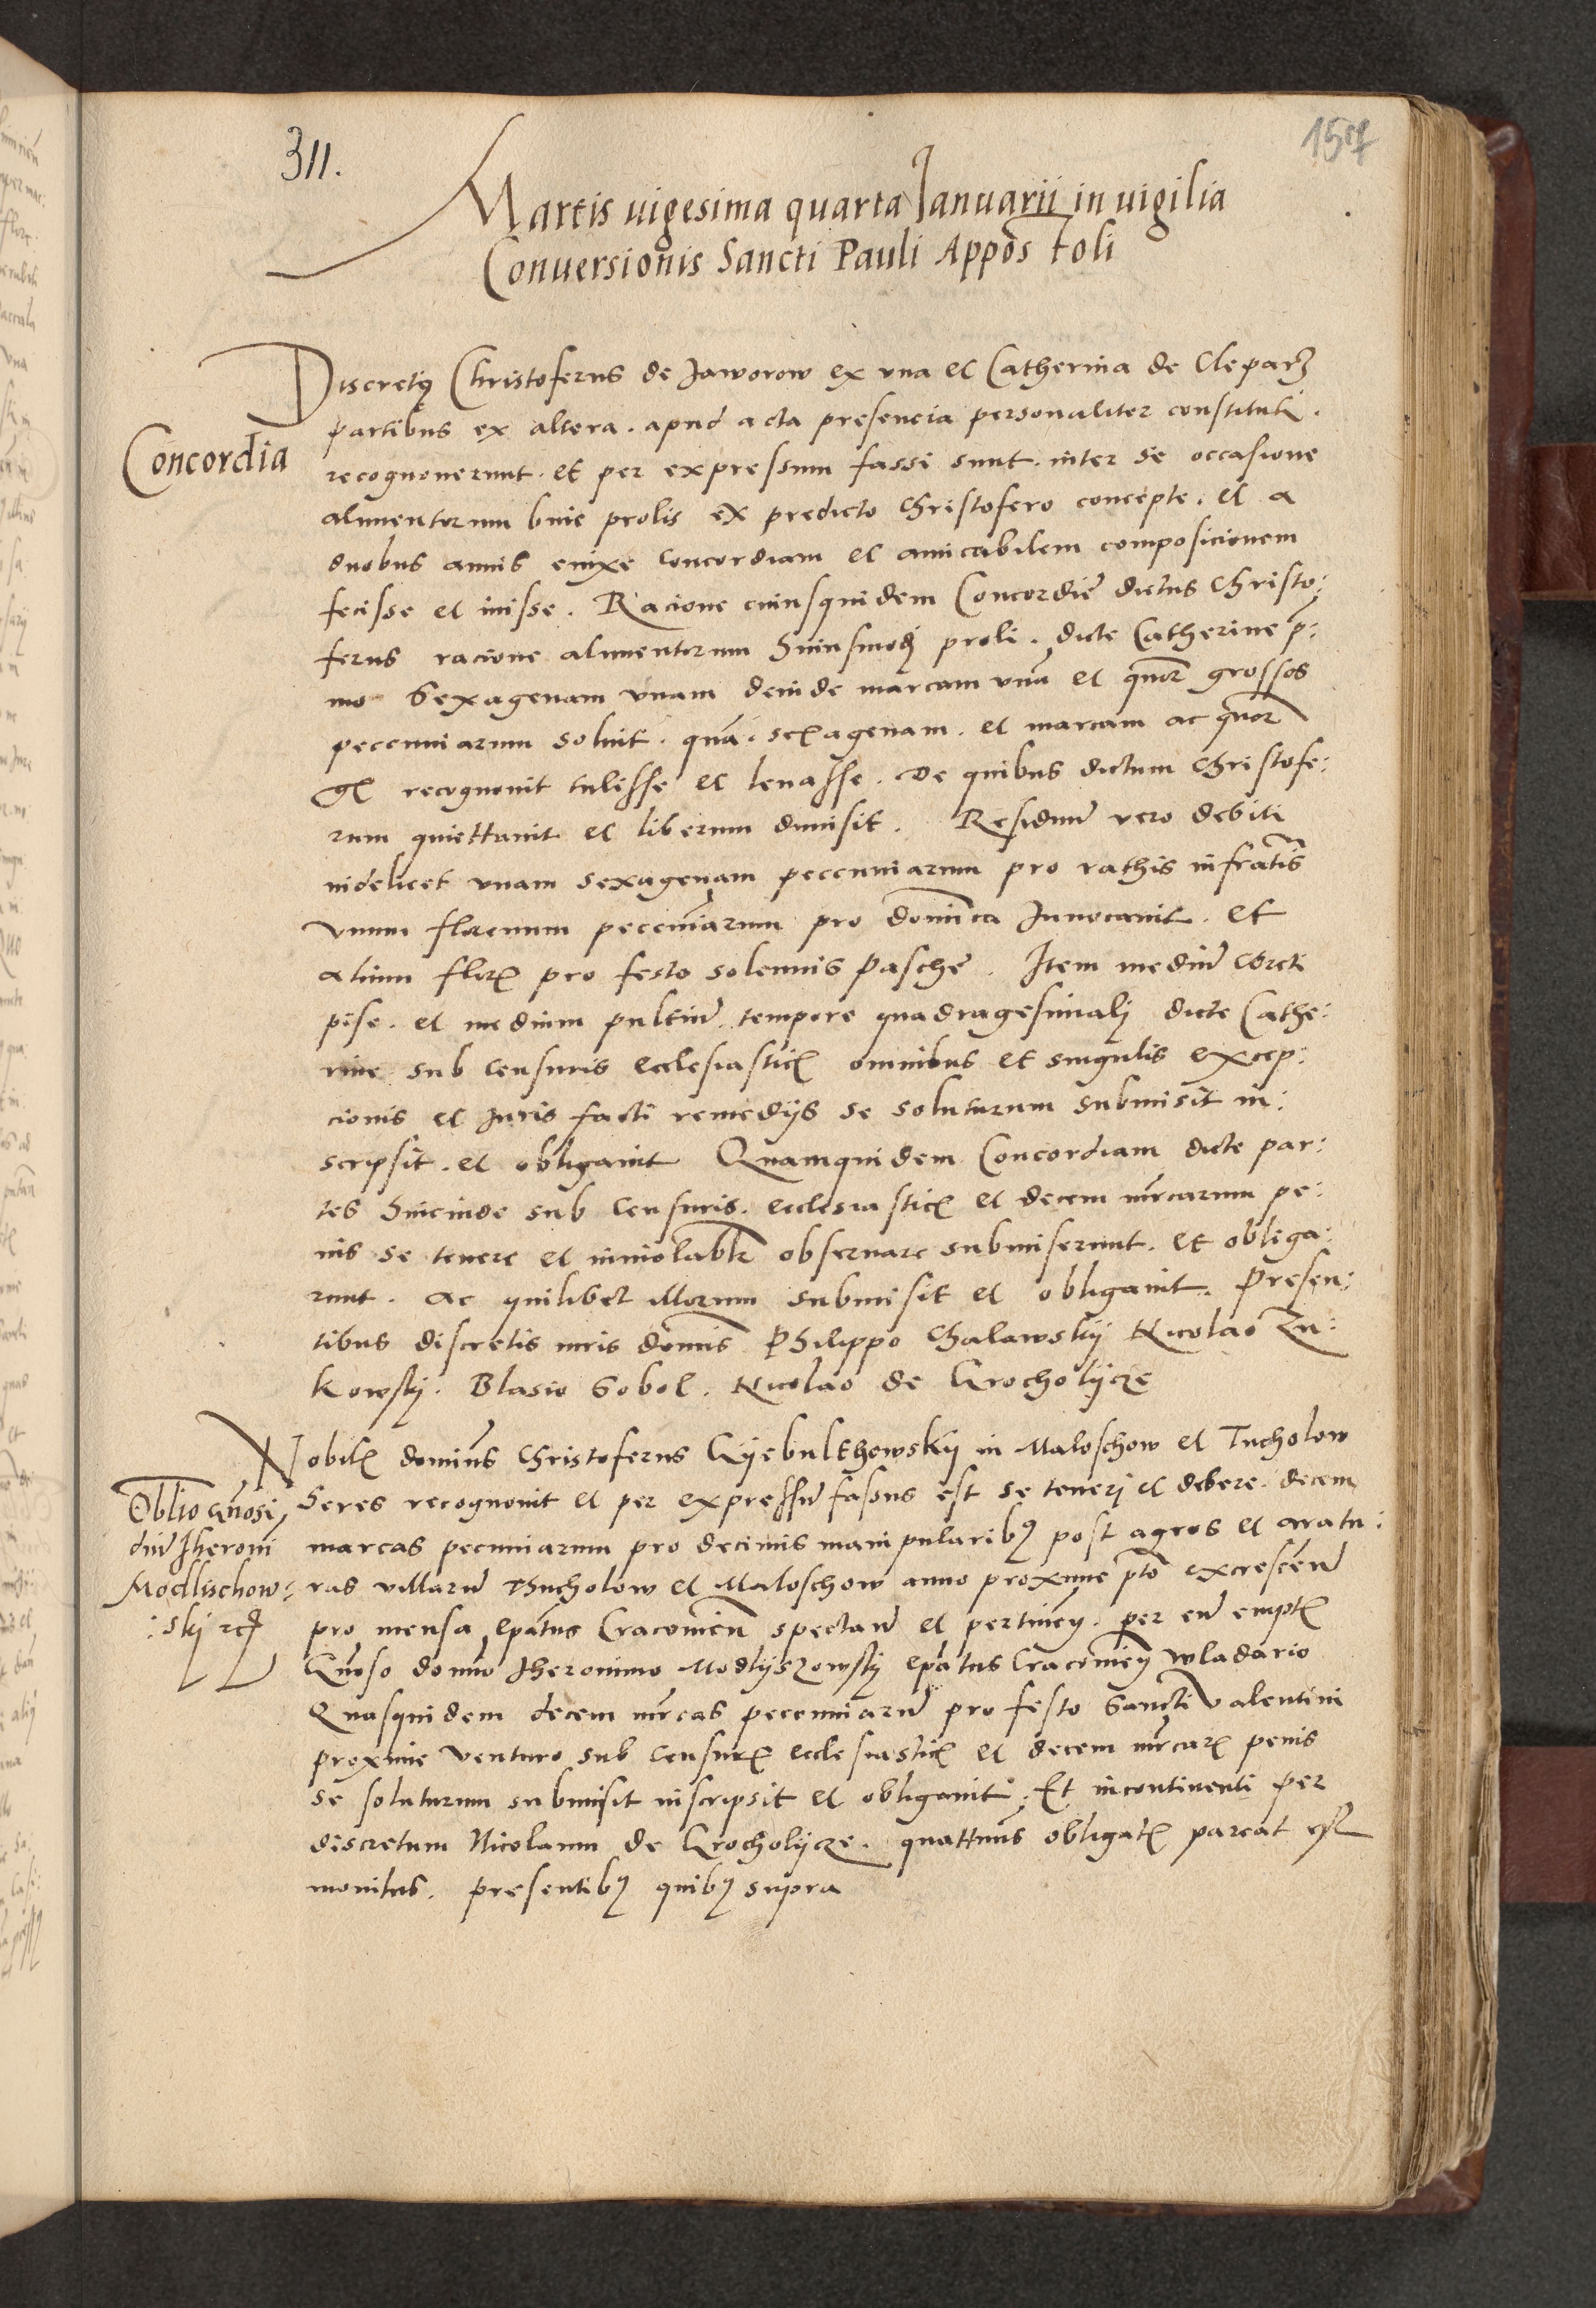 311.
157
Martis uigesima quarta Januarii in uigilia
Conuersionis Sancti Pauli Appostoli
Discretus Christoferus de Jaworow ex vna et Catherina de Clepar
Concordia
partibus ex altera. apud acta presencia personaliter constituti.
recognouerunt. et per expressum fassi sunt. inter se occasione
alimentorum huic prolis ex predicto Christofero concepte. et a
duobus annis enixe concordiam et amicabilem composicionem
fecisse et inisse. Racione cuiusquidem Concordie dictus Christo:
ferus racione alimentorum huiusmodi proli. dicte Catherine p:
mo Sexagenam vnam deinde marcam vnā et quor grossos
peccuniarum soluit. quā. sexagenam. et marcam ac quor
gr recognouit tulisse et leuasse. De quibus dictum Christofe:
rum quiettauit et liberum dimisit. Residuū vero debiti
uidelicet vnam sexagenam peccuniarum pro rathis infratis
Vnum florenum pecceniarum pro dominica Inuocauit. et
alium flor pro festo solennis Pasche. Item mediū coreti
pise. et medium pultiū tempore quadragesimalj dicte Cathe:
rine sub censuris ecclesiastic omnibus et singulis excep:
cionis et Juris facti remedijs se soluturum submisit in:
scripsit. et obligauit Quamquidem Concordiam dicte par:
tes hincinde sub censuris. ecclesiastic et decem mrcarum pe:
nis se tenere et inuiolablr obseruare submiserunt. et obliga:
runt. ac quilibet illorum submisit et obligauit. Presen:
tibus discretis uiris domis Philippo Chalawskij Nicolao Zu:
kowskj. Blasio Sobol. Nicolao de Krocholijcze
Nobil dominus Christoferus Gijebulthowskij in Maloschow et Tucholow
Oblio Gnosi
dni Jheroni
Modlischow:
:skj
heres recognouit et per expressū fassus est se tenerj et debere. decem
marcas pecuniarum pro decimis manipularibus post agros et aratu:
ras villarū Thucholow et Maloschow anno proxime pto excrescen
pro mensa epatus Cracouien spectan et pertinen. per eū empt
Gnoso domno Jheronimo Modlijszowskj epatus Cracouien wladario
Quasquidem decem mrcas peccuniarū pro festo Sancti Valentini
proxime venturo sub censur ecclesiastic et decem mrcar penis
se soluturum submisit inscripsit et obligauit. Et incontinenti per
discretum Nicolaum de Krocholijcze. quattinus obligat pareat est
monitus. presentibus quibus supra